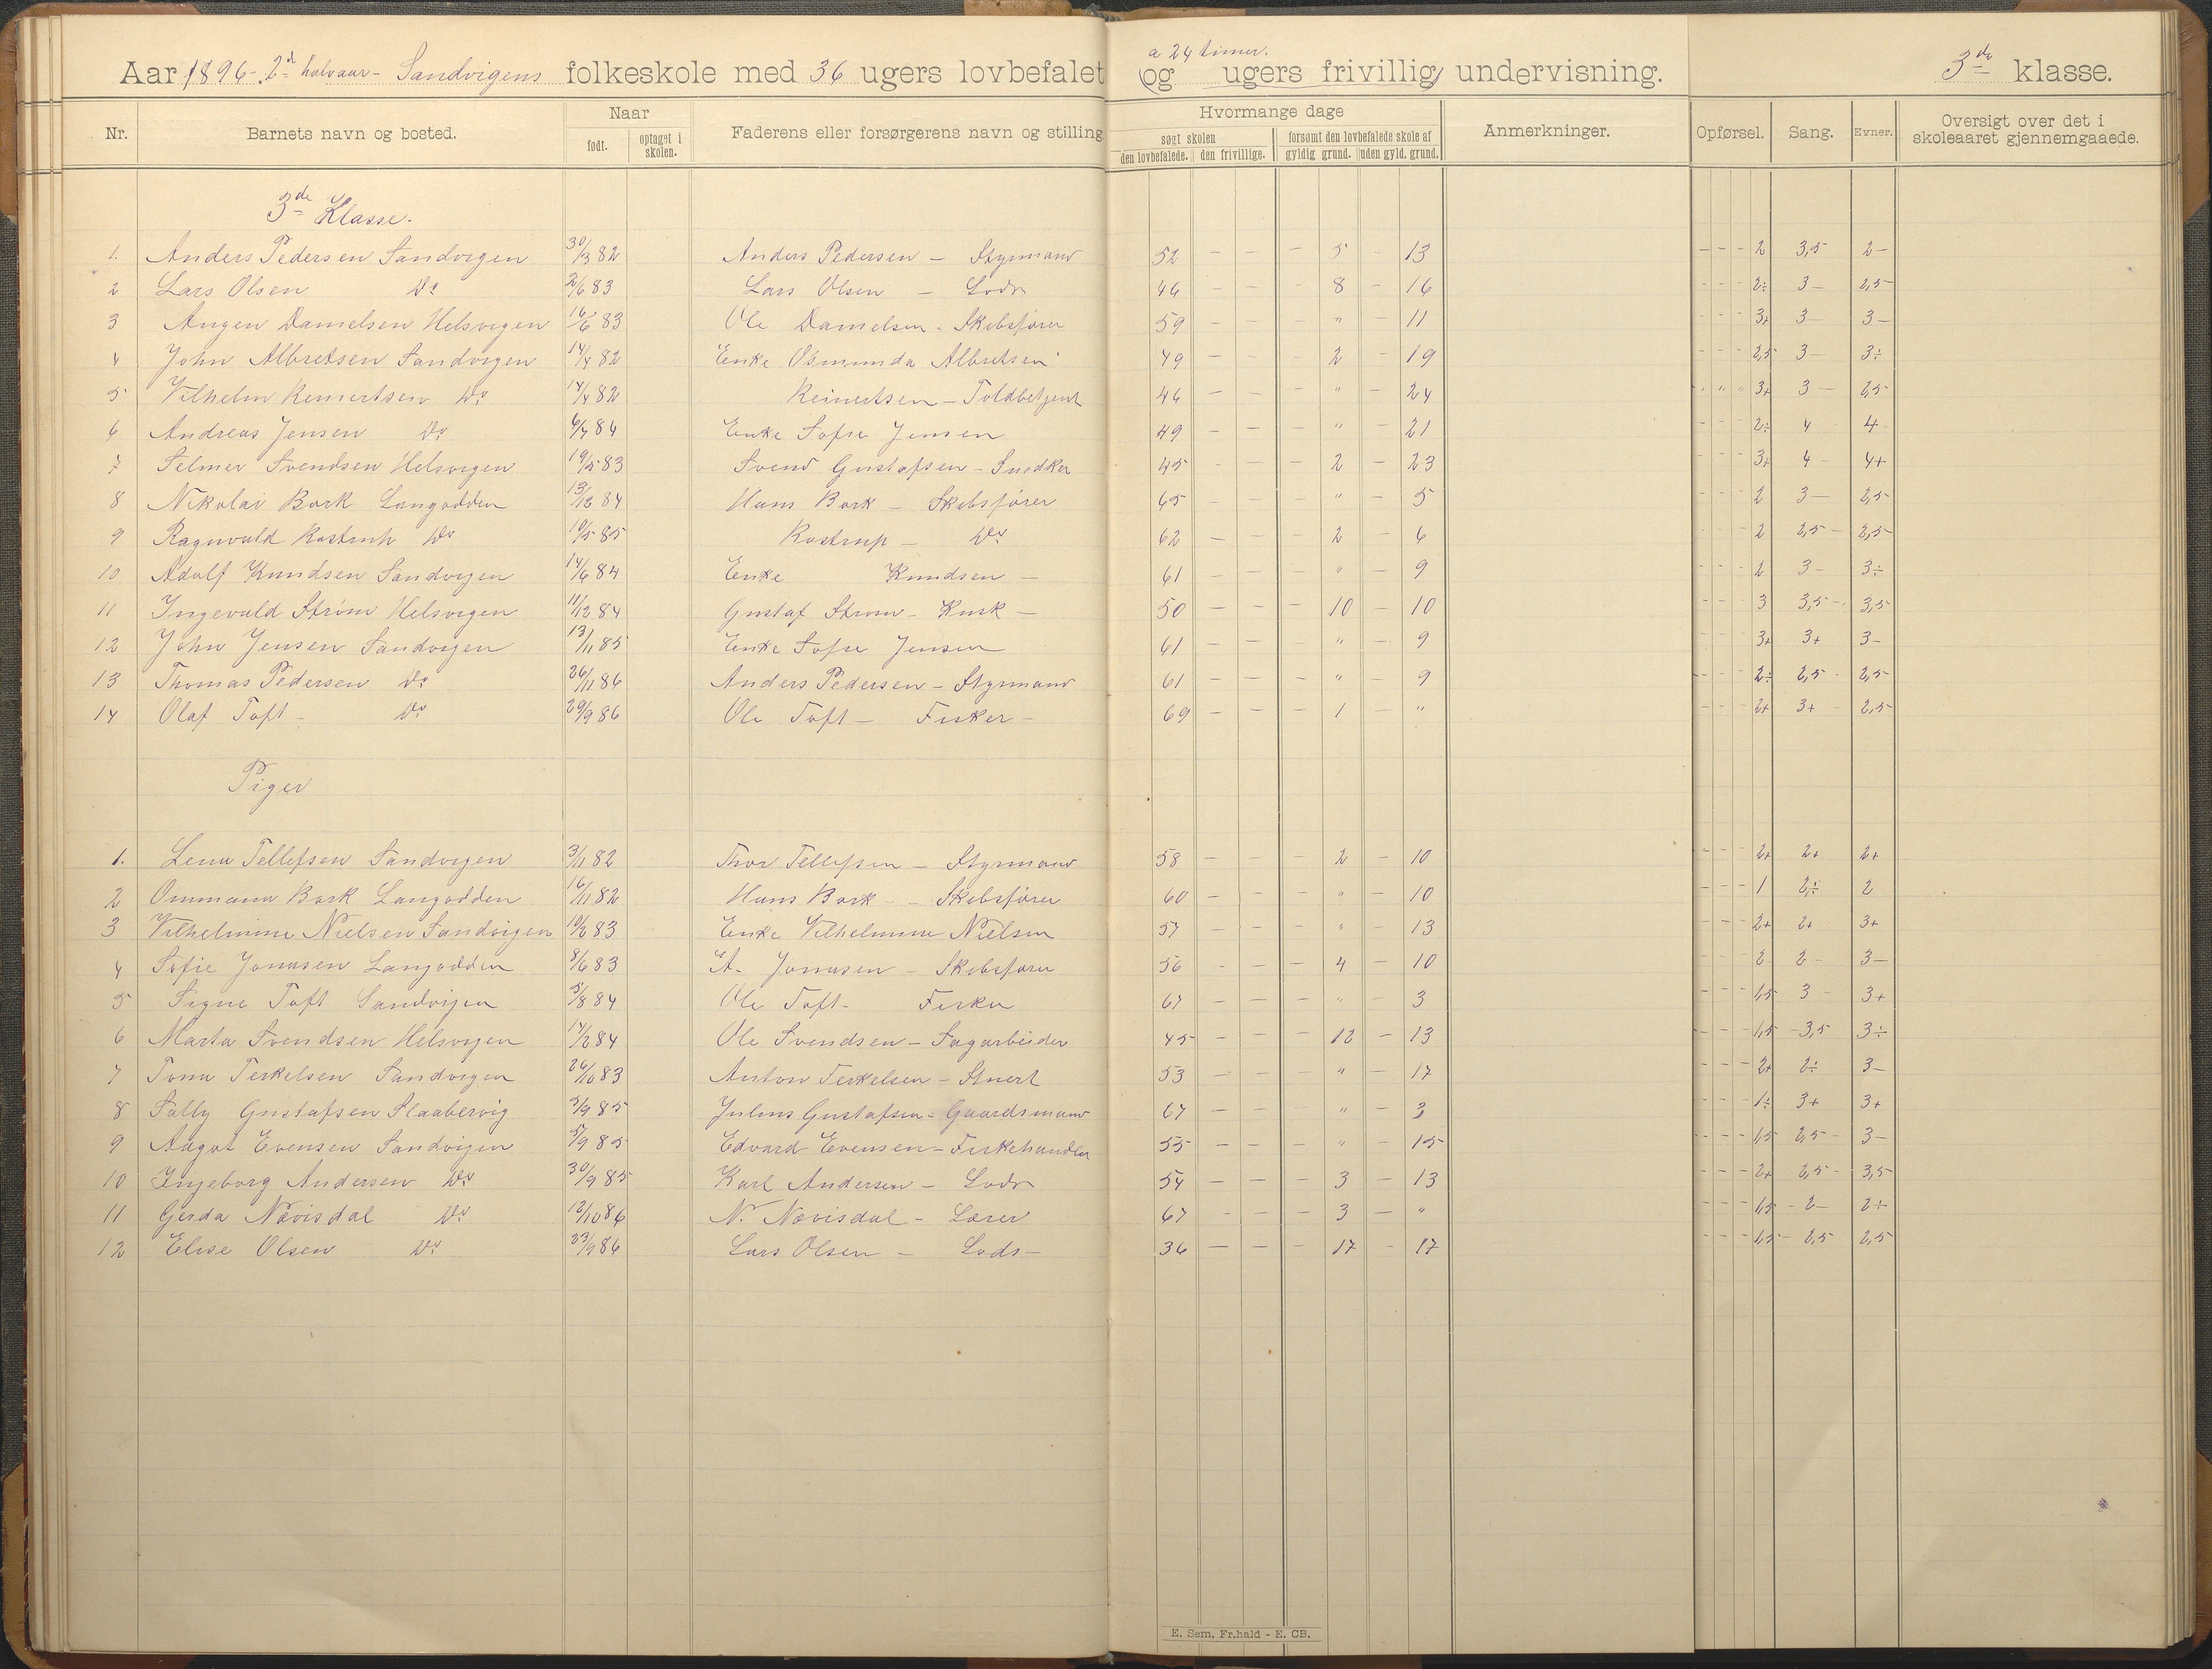 a 24 timer.
Aar 1896 - 2d halvaar - Sandvigens folkeskole med 36 ugers lovbefalet og ugers frivillig undervisning. 3de klasse.
Nr. Barnets navn og bosted. Naar Faderens eller forsørgerens navn og stilling Hvormange dage Anmerkninger. Opførsel. Sang. Evner. Oversigt over det i skoleaaret gjennemgaaede.
født. optaget i skolen. søgt skolen forsømt den lovbefalede skole af
den lovbefalede. den frivillige. gyldig grund. uden gyld. grund.
3de Klasse.
1. Anders Pedersen Sandvigen 30/3 82 Anders Pedersen - Styrmand 52 - - - 5 - 13 - - - 2 3,5 2-
2 Lars Olsen Do 2/6 83 Lars Olsen - Lods 46 - - - 8 - 16 - - - 2÷ 3- 2,5-
3 Angen Danielsen Helsvigen 16/6 83 Ole Danielsen - Skibsfører 59 - - - " - 11 - - - 3+ 3- 3-
4 John Albretsen Sandvigen 14/4 82 Enke Osmunda Albretsen 49 - - - 2 - 19 - - - 2,5 3- 3÷
5 Vilhelm Reinertsen Do 14/4 82 Reinertsen - Toldbetjent 46 - - - " - 24 " " " 3+ 3- 2,5
6 Andreas Jensen Do 6/7 84 Enke Sofie Jensen 49 - - - " - 21 - - - 2÷ 4 4
7 Selmer Svendsen Helsvigen 19/5 83 Svend Gustafsen - Snedker 45 - - - 2 - 23 - - - 3+ 4- 4+
8 Nikolai Bork Langodden 13/12 84 Hans Bork - Skibsfører 65 - - - " - 5 - - - 2 3- 2,5
9 Ragnvald Rostrup Do 10/5 85 Rostrup - Do 62 - - - 2 - 6 - - - 2 2,5- 2,5
10 Adolf Knudsen Sandvigen 14/6 84 Enke Knudsen - 61 - - - " - 9 - - - 2 3- 3÷
11 Ingevald Strøm Helsvigen 11/12 84 Gustaf Strøm - Kusk - 50 - - - 10 - 10 - - - 3 3,5- 3,5
12 John Jensen Sandvigen 13/11 85 Enke Sofie Jensen 61 - - - " - 9 - - - 3+ 3+ 3-
13 Thomas Pedersen Do 26/11 86 Anders Pedersen - Styrmand 61 - - - " - 9 - - - 2÷ 2,5- 2,5
14 Olaf Toft - Do 29/9 86 Ole Toft - Fisker - 69 - - - 1 - " - - - 2+ 3+ 2,5
Piger
1. Lena Tellefsen Sandvigen 3/11 82 Thor Tellefsen - Styrmand 58 - - - 2 - 10 - - - 2+ 2+ 2+
2 Ommana Bork Langodden 16/11 82 Hans Bork - Skibsfører 60 - - - " - 10 - - - 1 2÷ 2
3 Vilhelmine Nielsen Sandvigen 10/2 83 Enke Vilhelmine Nielsen 57 - - - " - 13 - - - 2+ 2+ 3+
4 Sofie Jonasen Langodden 8/6 83 A. Jonasen - Skibsfører 56 - - - 4 - 10 - - - 2 2- 3-
5 Signe Toft Sandvigen 5/8 84 Ole Toft - Fisker 67 - - - " - 3 - - - 1,5 3- 3+
6 Marta Svendsen Helsvigen 14/2 84 Ole Svendsen - Sagarbeider 45 - - - 12 - 13 - - - 1,5 -3,5 3÷
7 Tona Terkelsen Sandvigen 26/10 83 Anton Terkelsen - Stuert 53 - - - " - 17 - - - 2+ 2÷ 3-
8 Sally Gustafsen Slaabervig 3/9 85 Julius Gustafsen - Gaardsmand 67 - - - " - 3 - - - 1÷ 3+ 3+
9 Aagot Evensen Sandvigen 5/9 85 Edvard Evensen - Fiskehandler 55 - - - " - 15 - - - 1,5 2,5- 3-
10 Ingeborg Andersen Do 30/9 85 Karl Andersen - Lods 54 - - - 3 - 13 - - - 2+ 2,5- 3,5
11 Gerda Nævisdal Do 12/10 86 N. Nævisdal - Lærer 67 - - - 3 - " - - - 1,5 -2- 2÷
12 Elise Olsen Do 23/9 86 Lars Olsen - Lods - 36 - - - 17 - 17 - - - 1,5 - 2,5 2,5
E. Sem, Fr.hald - E. CB.